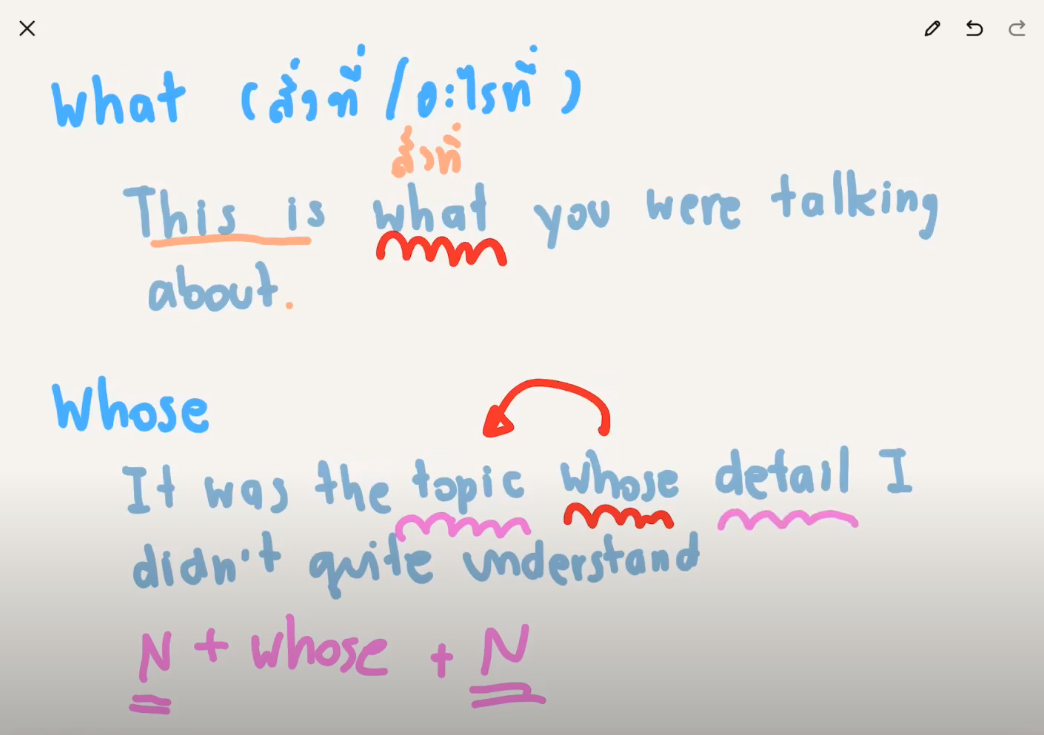 What (สิ่งที่/อะไรที่)
สิ่งที่
This is what you were talking
about.
Whose
It was the topic whose detail I
didn't quite understand
N + whose + N